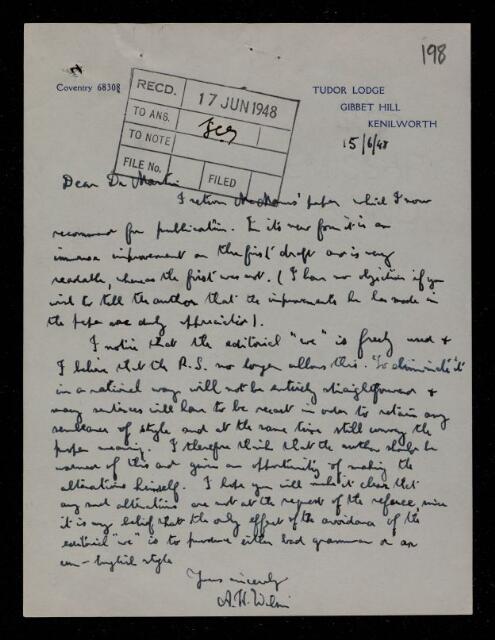 198
Coventry 68308
TUDOR LODGE
GIBBET HILL
KENILWORTH
RECD. 17 JUN 1948
TO ANS.
TO NOTE
FILE No. FILED
15/6/48
Dear Dr Martin
I return paper which I now
recommend for publication. In its new form it is an
immense improvement on the first draft and is very
readable, whereas the first was not. (I have no objection if you
wish to tell the author that the improvements he has made in
the paper are duly appreciated).
I notice that the editorial "we" is freely used &
I believe that the R.S. no longer allows this. To eliminate it
in a rational way will not be entirely straightforward &
many sentences will have to be recast in order to retain any
semblance of style and at the same time still convey the
proper meaning. I therefore think that the author should be
warned of this and given an opportunity of making the
alterations himself. I hope you will make it clear that
any such alterations are not at the request of the referee, since
it is my belief that the only effect of the avoidance of the
editorial "we" is to produce either bad grammar or an
un-English style
Yours sincerely
A.H. Wilson